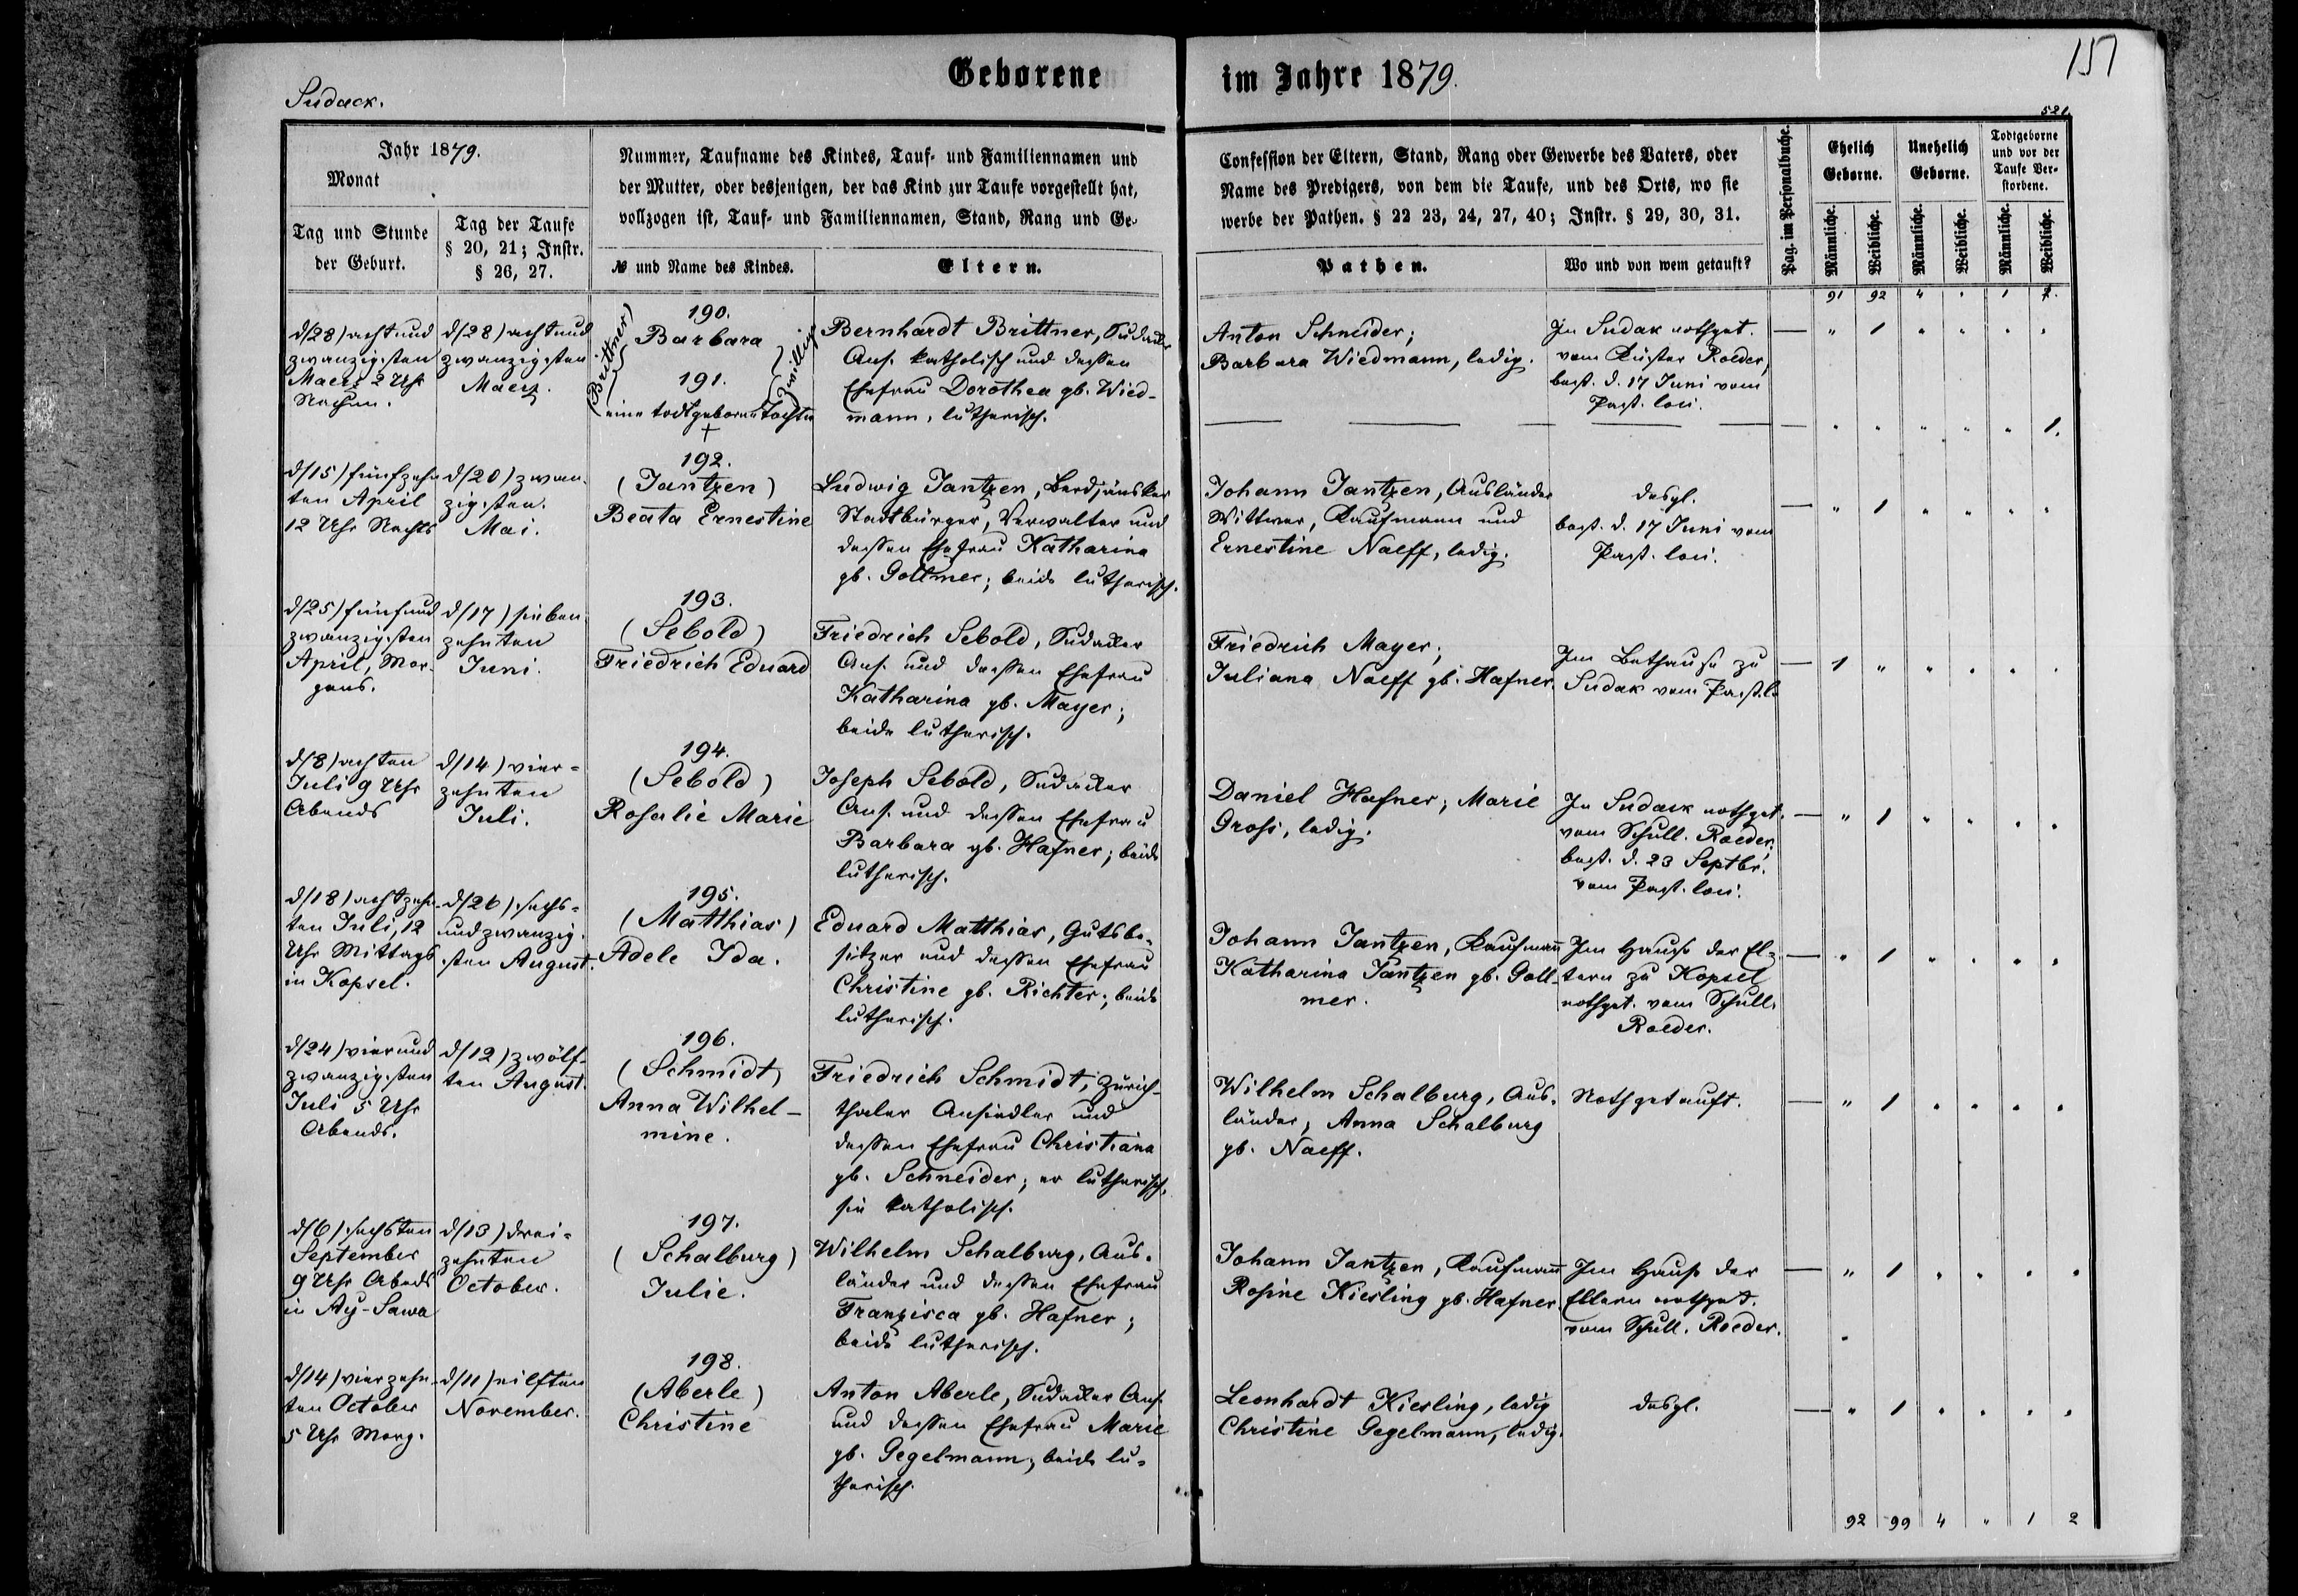 151
Geborene im Jahre 1879.
Sudack.
521.
Jahr 1879.
Monat
Tag und Stunde
der Geburt.
Tag der Taufe
§ 20, 21; Instr.
§ 26, 27.
Nummer, Taufname des Kindes, Tauf- und Familiennamen und
der Mutter, oder desjenigen, der das Kind zur Taufe vorgestellt hat,
vollzogen ist, Tauf- und Familiennamen, Stand, Rang und Ge-
№ und Name des Kindes.
Eltern.
Confession der Eltern, Stand, Rang oder Gewerbe des Vaters, oder
Name des Predigers, von dem die Taufe, und des Orts, wo sie
werbe der Pathen. § 22 23, 24, 27, 40; Instr. § 29, 30, 31.
Pathen.
Wo und von wem getauft?
Pag. im Personalbuche.
Ehelich
Geborne.
Unehelich
Geborne.
Todtgeborne
und vor der
Taufe Ver-
storbene.
Männliche.
Weibliche.
Männliche.
Weibliche.
Männliche.
Weibliche.
91 92 4 " 1 2.
d/28) acht und
zwanzigsten
Maerz 2 Uhr
Nachm.
d/28) acht und
zwanzigsten
Maerz.
190.
Barbara
191.
eine todtgeborene Tochter
†
(Brittner)
Zwillinge
Bernhardt Brittner, Sudacker
Ans. katholisch und dessen
Ehefrau Dorothea gb. Wied-
mann, lutherisch.
Anton Schneider;
Barbara Wiedmann, ledig.
In Sudak nothget.
vom Küster Roeder,
best. d. 17 Juni vom
Past. loci.
— " 1 " " " "
— " " " " " 1.
d/15) fünfzehn
ten April
12 Uhr Nachts
d/20) zwan
zigsten
Mai.
192.
(Jantzen)
Beata Ernestine
Ludwig Jantzen, Berdjansker
Stadtbürger, Verwalter und
dessen Ehefrau Katharina
gb. Gollmer; beide lutherisch.
Johann Jantzen, Ausländer
Wittwer, Kaufmann und
Ernestine Naeff, ledig.
desgl.
best. d. 17 Juni vom
Past. loci.
— " 1 " " " "
d/25) fünfund
zwanzigsten
April, Mor-
gens.
d/17) sieben
zehnten
Juni.
193.
(Sebold)
Friedrich Eduard
Friedrich Sebold, Sudacker
Ans. und dessen Ehefrau
Katharina gb. Mayer;
beide lutherisch.
Friedrich Mayer;
Juliana Naeff gb. Hafner.
Im Bethause zu
Sudak vom Past. l.
— 1 " " " " "
d/8) achten
Juli 9 Uhr
Abends
d/14) vier-
zehnten
Juli.
194.
(Sebold)
Rosalie Marie
Joseph Sebold, Sudacker
Ans. und dessen Ehefrau
Barbara gb. Hafner; beide
lutherisch.
Daniel Hafner; Marie
Gross, ledig.
In Sudack nothget.
vom Schull. Roeder.
best. d. 23 Septbr.
vom Past. loci.
— " 1 " " " "
d/18) achtzehn-
ten Juli, 12
Uhr Mittags
in Kopsel.
d/26) sechs-
undzwanzig-
sten August.
195.
(Matthias)
Adele Ida.
Eduard Matthias, Gutsbe-
sitzer und dessen Ehefrau
Christine gb. Richter; beide
lutherisch.
Johann Jantzen, Kaufmann
Katharina Jantzen gb. Goll-
mer.
Im Hause der El-
tern zu Kopsel
nothget. vom Schull.
Roeder.
— " 1 " " " "
d/24) vier und
zwanzigsten
Juli 5 Uhr
Abends.
d/12) zwölf-
ten August.
196.
(Schmidt)
Anna Wilhel-
mine.
Friedrich Schmidt, Zürich-
thaler Ansiedler und
dessen Ehefrau Christiana
gb. Schneider; er lutherisch,
sie katholisch.
Wilhelm Schalburg, Aus-
länder, Anna Schalburg
gb. Naeff.
Nothgetauft.
— " 1 " " " "
d/6) sechsten
September
9 Uhr Abends
in Ay-Sawa
d/13) drei-
zehnten
October.
197.
(Schalburg)
Julie.
Wilhelm Schalburg, Aus-
länder und dessen Ehefrau
Franzisca gb. Hafner;
beide lutherisch.
Johann Jantzen, Kaufmann
Rosine Kiesling gb. Hafner.
Im Hause der
Eltern nothget.
vom Schull. Roeder.
— " 1 " " " "
d/14) vierzehn-
ten October
5 Uhr Morg.
d/11) eilften
November.
198.
(Aberle)
Christine
Anton Aberle, Sudacker Ans.
und dessen Ehefrau Marie
gb. Gegelmann, beide lu-
therisch.
Leonhardt Kiesling, ledig
Christine Gegelmann, ledig.
desgl.
— " 1 " " " "
92 99 4 " 1 2